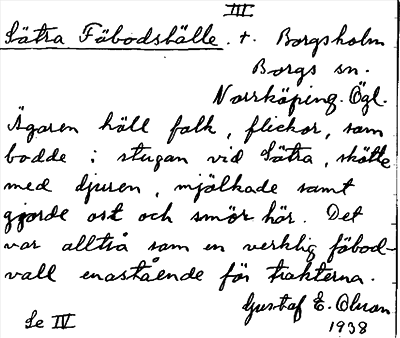 III
Sätra Fäbodställe. t. Borgsholm
Borgs sn.
Norrköping. Ögl.
Ägaren höll folk, flickor, som
bodde i stugan vid Sätra, skötte
med djuren, mjölkade samt
gjorde ost och smör här. Det
var alltså som en verklig fäbod-
vall enastående för trakterna.
Gustaf E. Olsson
Se IV 1938